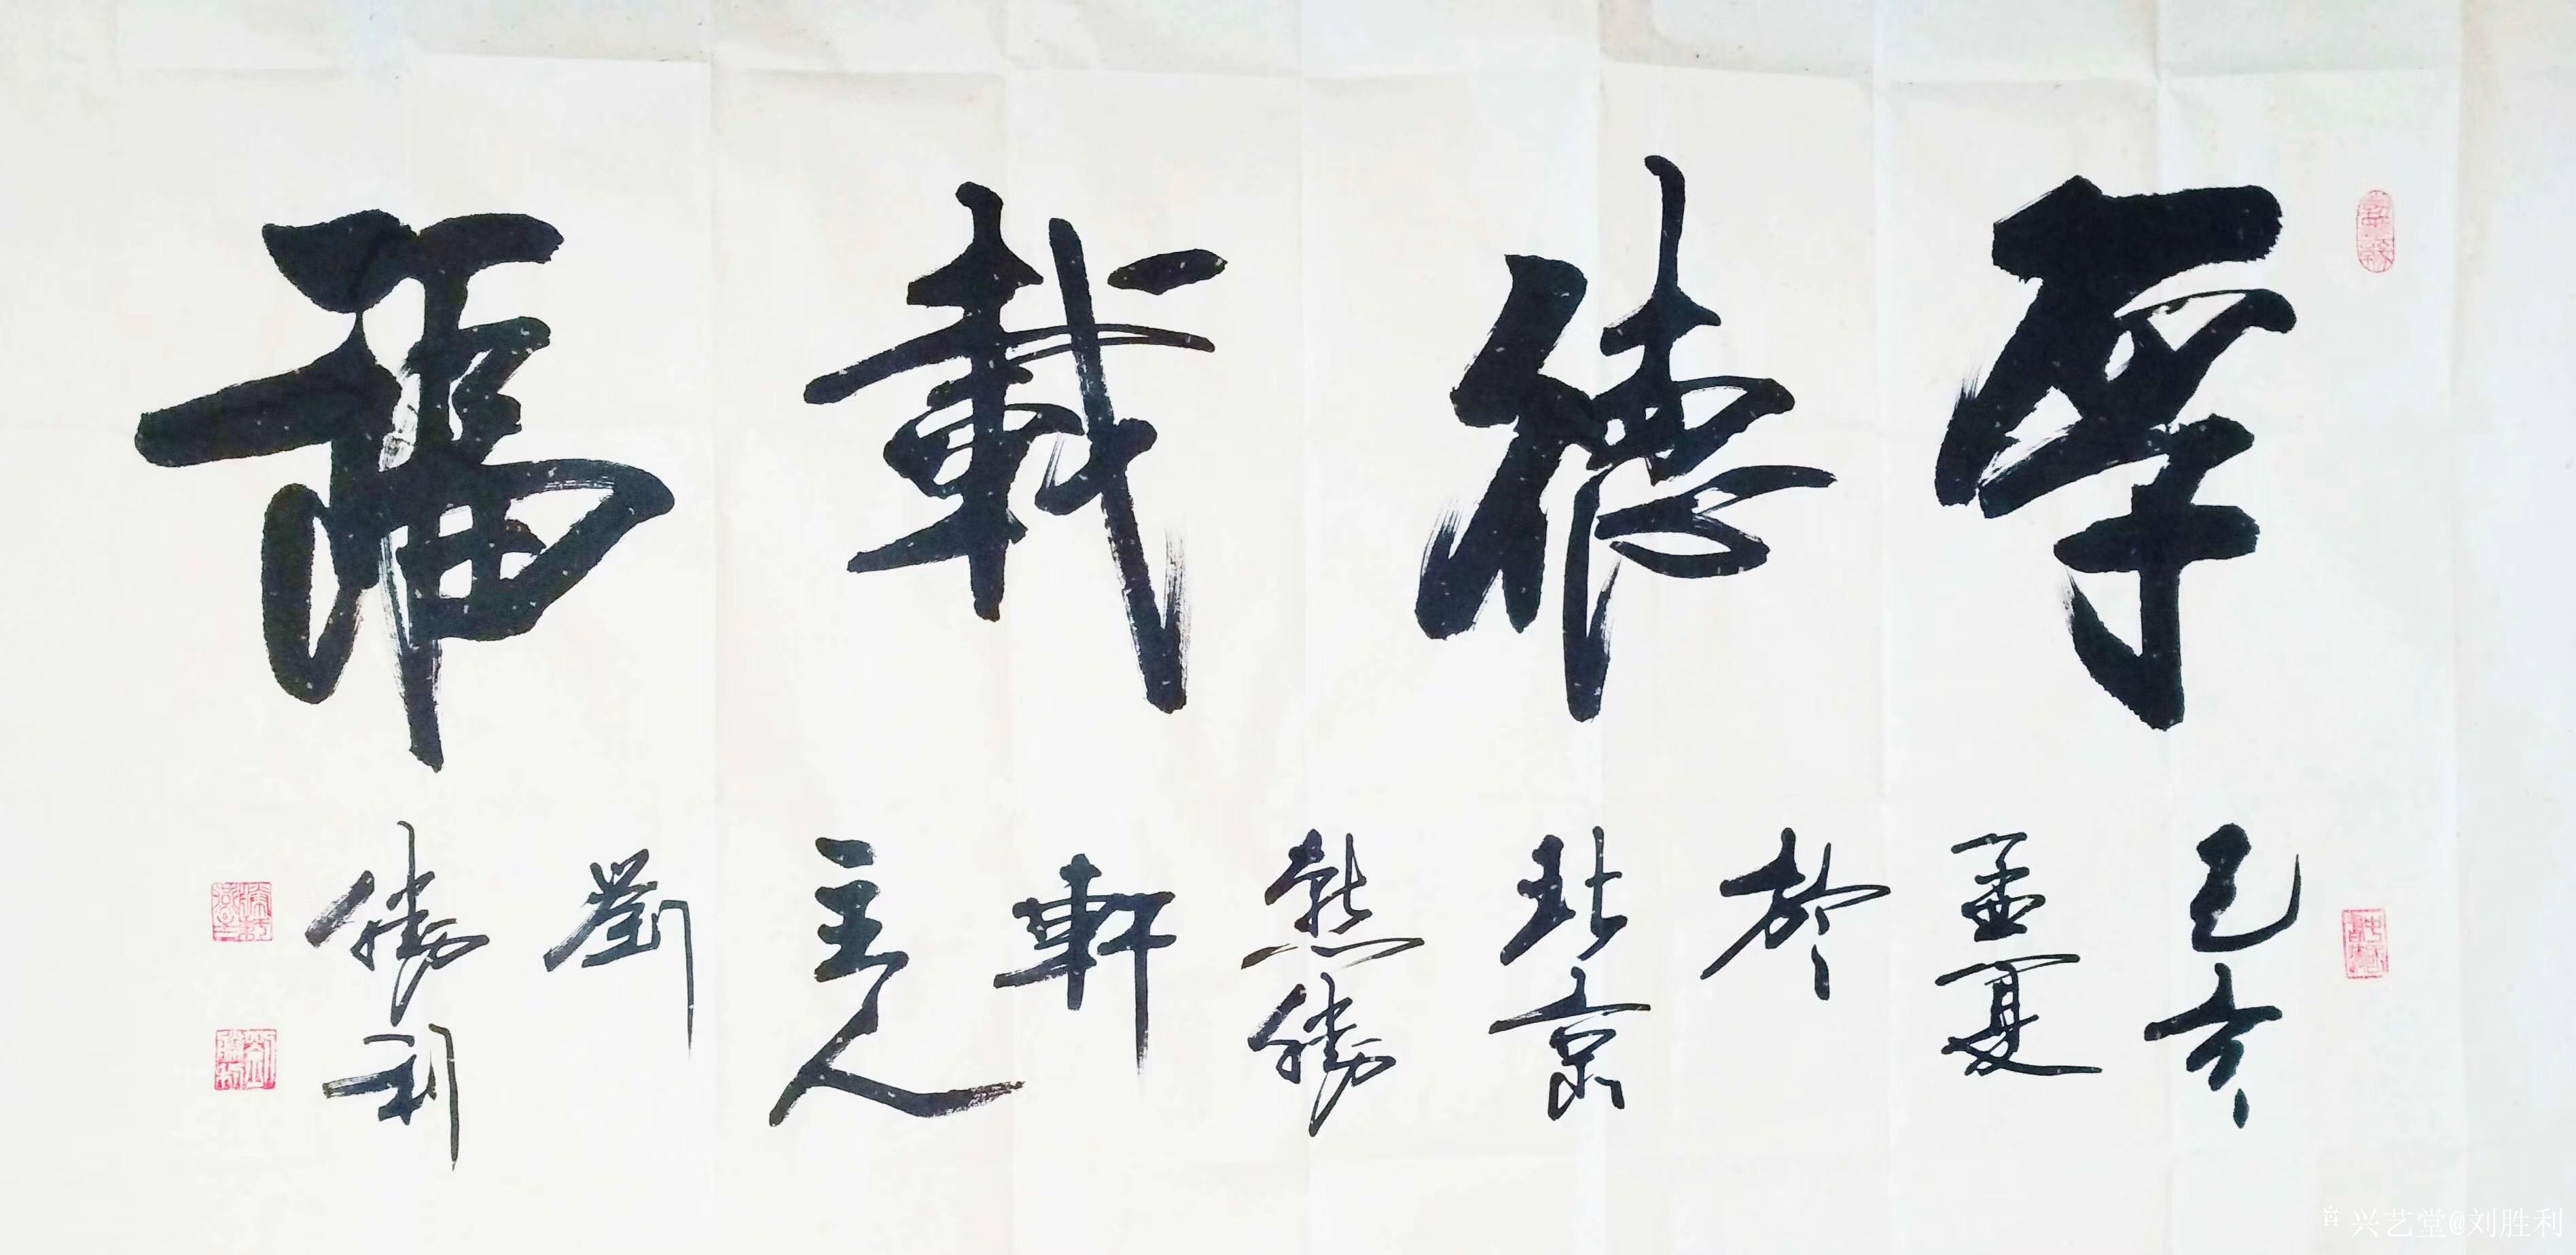 厚德載福
己亥
孟夏
於
北京
熱勝
軒
主人
劉
勝利
兴艺堂@刘胜利